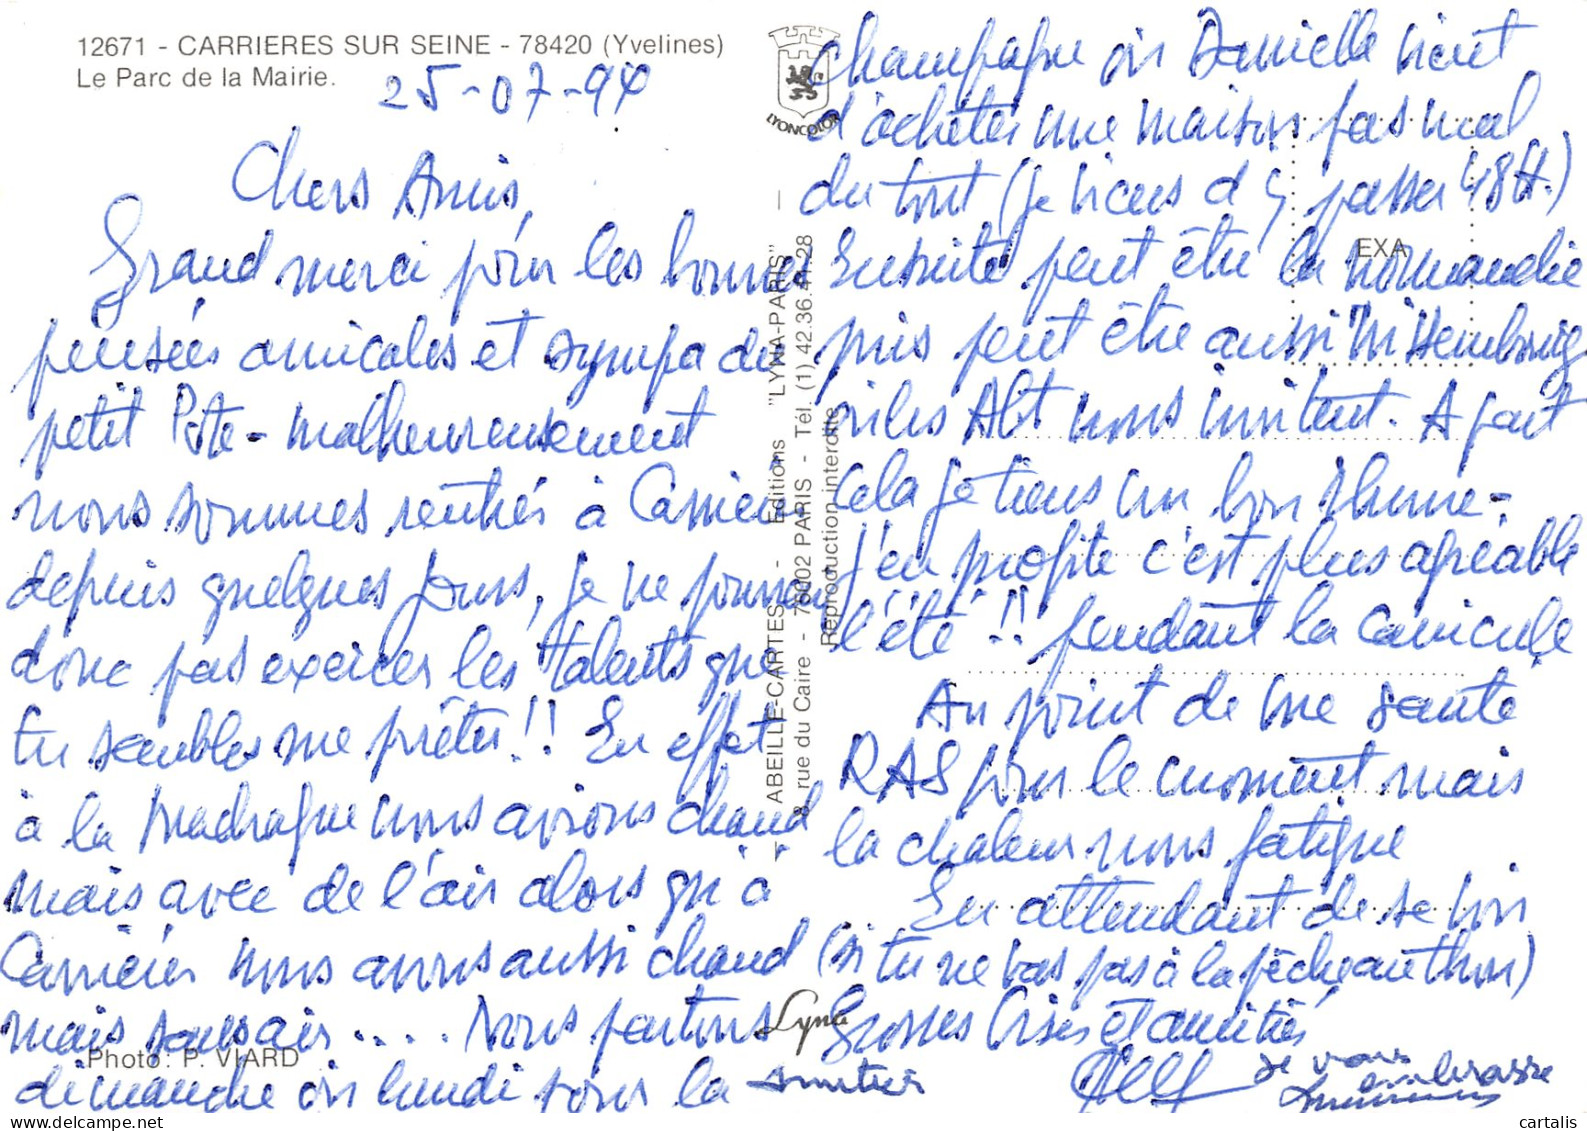 12671 - CARRIERES SUR SEINE - 78420 (Yvelines)
Le Parc de la Mairie.
25-07-94
Chers Amis,
Grand merci pour les bonnes
pensées amicales et sympa du
petit Pote - malheureusement
nous sommes rentrés à Carrières
depuis quelques jours, je ne pourrai
donc pas exercer les talents que
tu sembles me prêter!! En effet
à la Madrague nous avions chaud
mais avec de l'air alors qu'à
Carrières nous avons aussi chaud
mais sans air .... Nous partons
dimanche ou lundi pour la
champagne où Danielle vient
d'acheter une maison pas mal
du tout (je viens d'y passer 48 H.)
Ensuite peut être la normandie
puis peut être aussi
où les Alt nous invitent. A part
cela je tiens un bon rhume -
j'en profite c'est plus agréable
l'été!! pendant la canicule
Au point de vue santé
RAS pour le moment mais
la chaleur nous fatigue
En attendant de se voir
(si tu ne vas pas à la pêche au thon)
Grosses bises et amitiés
je vous
embrasse
ABEILLE-CARTES - Editions "LYNA-PARIS" -
8, rue du Caire - 75002 PARIS - Tél. (1) 42.36.41.28
Reproduction interdite
LYONCOLOR
EXA
Lyna
Photo: P. VIARD
cartalis